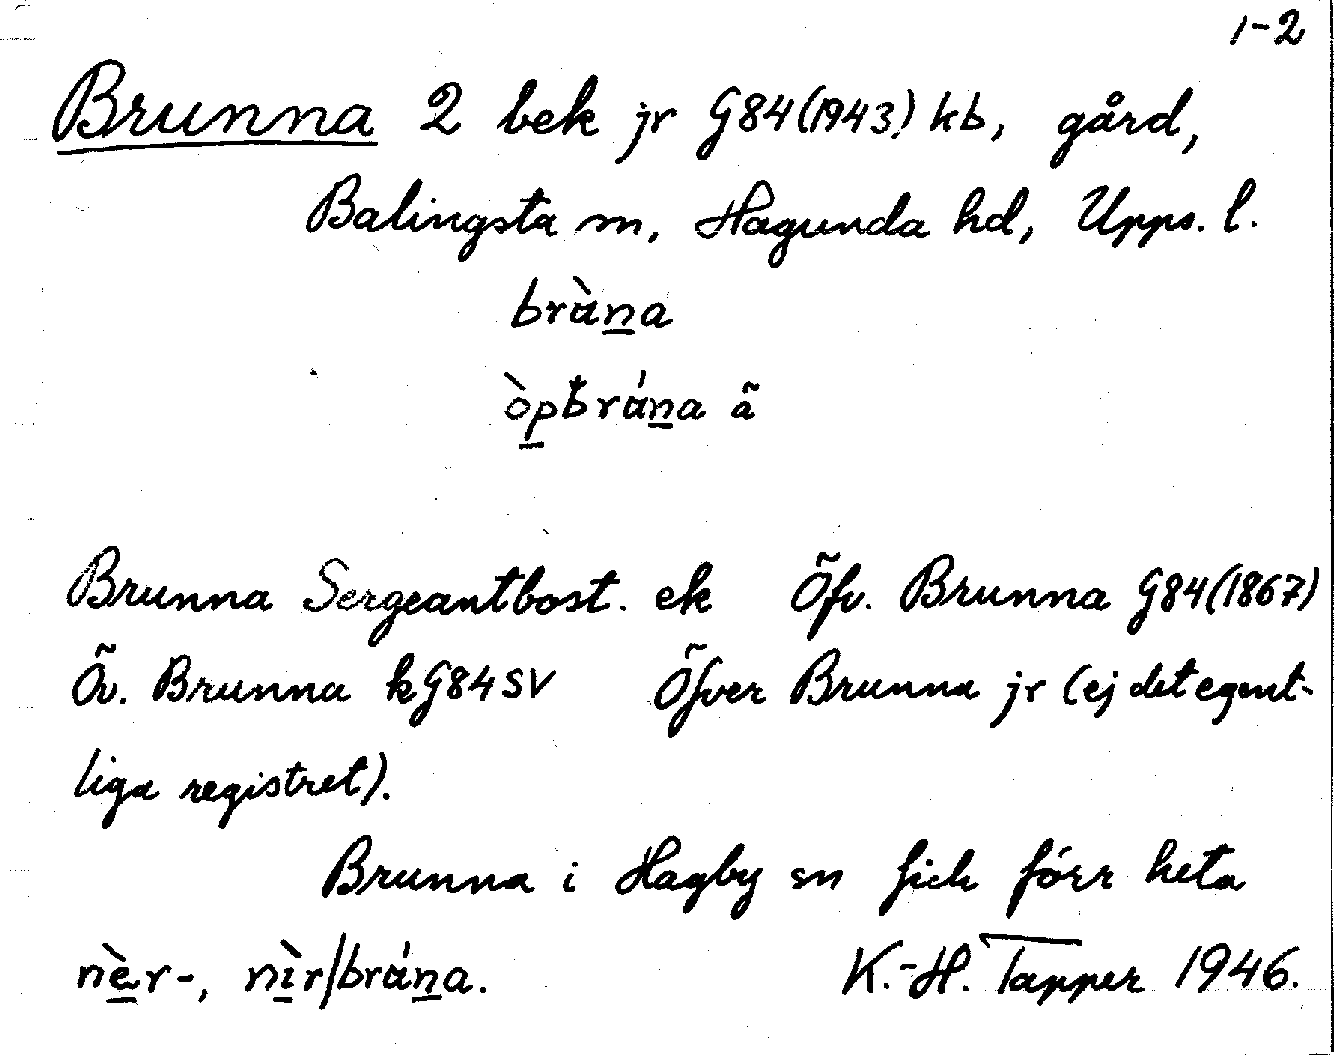 1-2
Brunna 2 bek jr G84(1943) kb, gård,
Balingsta sn, Hagunda hd, Upps. l.
bràn̲a
òp̲brán̲a ã
Brunna Sergeantbost. ek Öfv. Brunna G84(1867)
Öv. Brunna kG84SV Öfver Brunna jr (ej det egent-
liga registret).
Brunna i Hagby sn fick förr heta
nè̲r-, nì̲r/brán̲a. K.-H. Tapper 1946.